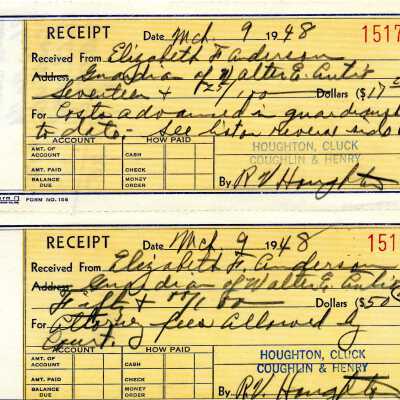 RECEIPT Date Mch. 9 1948 1517
Received From Elizabeth F. Anderson
Address, Guardian of Walter E.
Seventeen + 25/100 Dollars ($17
For Costs advanced in
to date,- See list on reverse side
ACCOUNT HOW PAID
AMT. OF ACCOUNT CASH
AMT. PAID CHECK
BALANCE DUE MONEY ORDER
HOUGHTON, CLUCK
COUGHLIN & HENRY
By R V Houghton
FORM NO. 106
RECEIPT Date Mch. 9 1948 151
Received From Elizabeth F. Anderson
Address Guardian of Walter E.
Fifty + no/100 Dollars ($50
For Attorney fees allowed by
Court.
ACCOUNT HOW PAID
AMT. OF ACCOUNT CASH
AMT. PAID CHECK
BALANCE DUE MONEY ORDER
HOUGHTON, CLUCK
COUGHLIN & HENRY
By R.V. Houghton